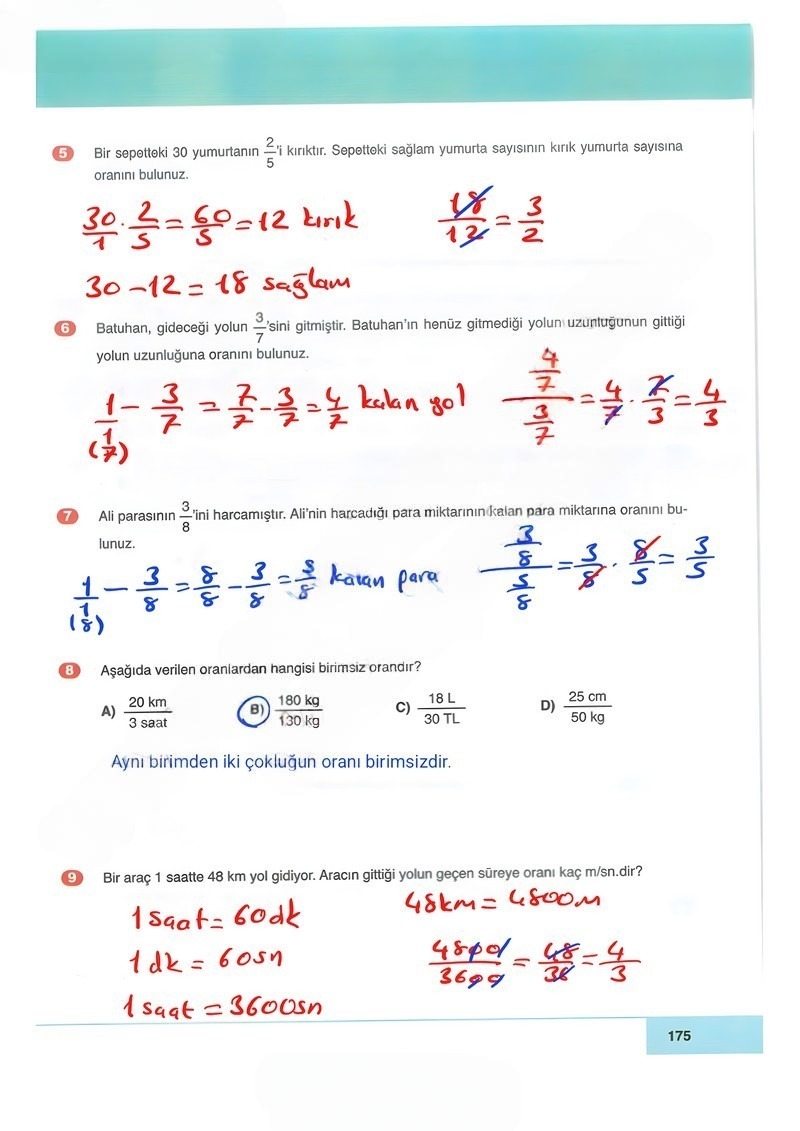 5 Bir sepetteki 30 yumurtanın 2/5'i kırıktır. Sepetteki sağlam yumurta sayısının kırık yumurta sayısına
oranını bulunuz.
30/1 · 2/5 = 60/5 = 12 kırık
18/12 = 3/2
30 - 12 = 18 sağlam
6 Batuhan, gideceği yolun 3/7'sini gitmiştir. Batuhan'ın henüz gitmediği yolun uzunluğunun gittiği
yolun uzunluğuna oranını bulunuz.
1/1 - 3/7 = 7/7 - 3/7 = 4/7 kalan yol
(7)
4/7 / 3/7 = 4/7 · 7/3 = 4/3
7 Ali parasının 3/8'ini harcamıştır. Ali'nin harcadığı para miktarının kalan para miktarına oranını bu-
lunuz.
1/1 - 3/8 = 8/8 - 3/8 = 5/8 kalan para
(8)
3/8 / 5/8 = 3/8 · 8/5 = 3/5
8 Aşağıda verilen oranlardan hangisi birimsiz orandır?
A) 20 km / 3 saat B) 180 kg / 130 kg C) 18 L / 30 TL D) 25 cm / 50 kg
Aynı birimden iki çokluğun oranı birimsizdir.
9 Bir araç 1 saatte 48 km yol gidiyor. Aracın gittiği yolun geçen süreye oranı kaç m/sn.dir?
1 saat = 60dk
48km = 4800m
1 dk = 60sn
4800/3600 = 48/36 = 4/3
1 saat = 3600sn
175